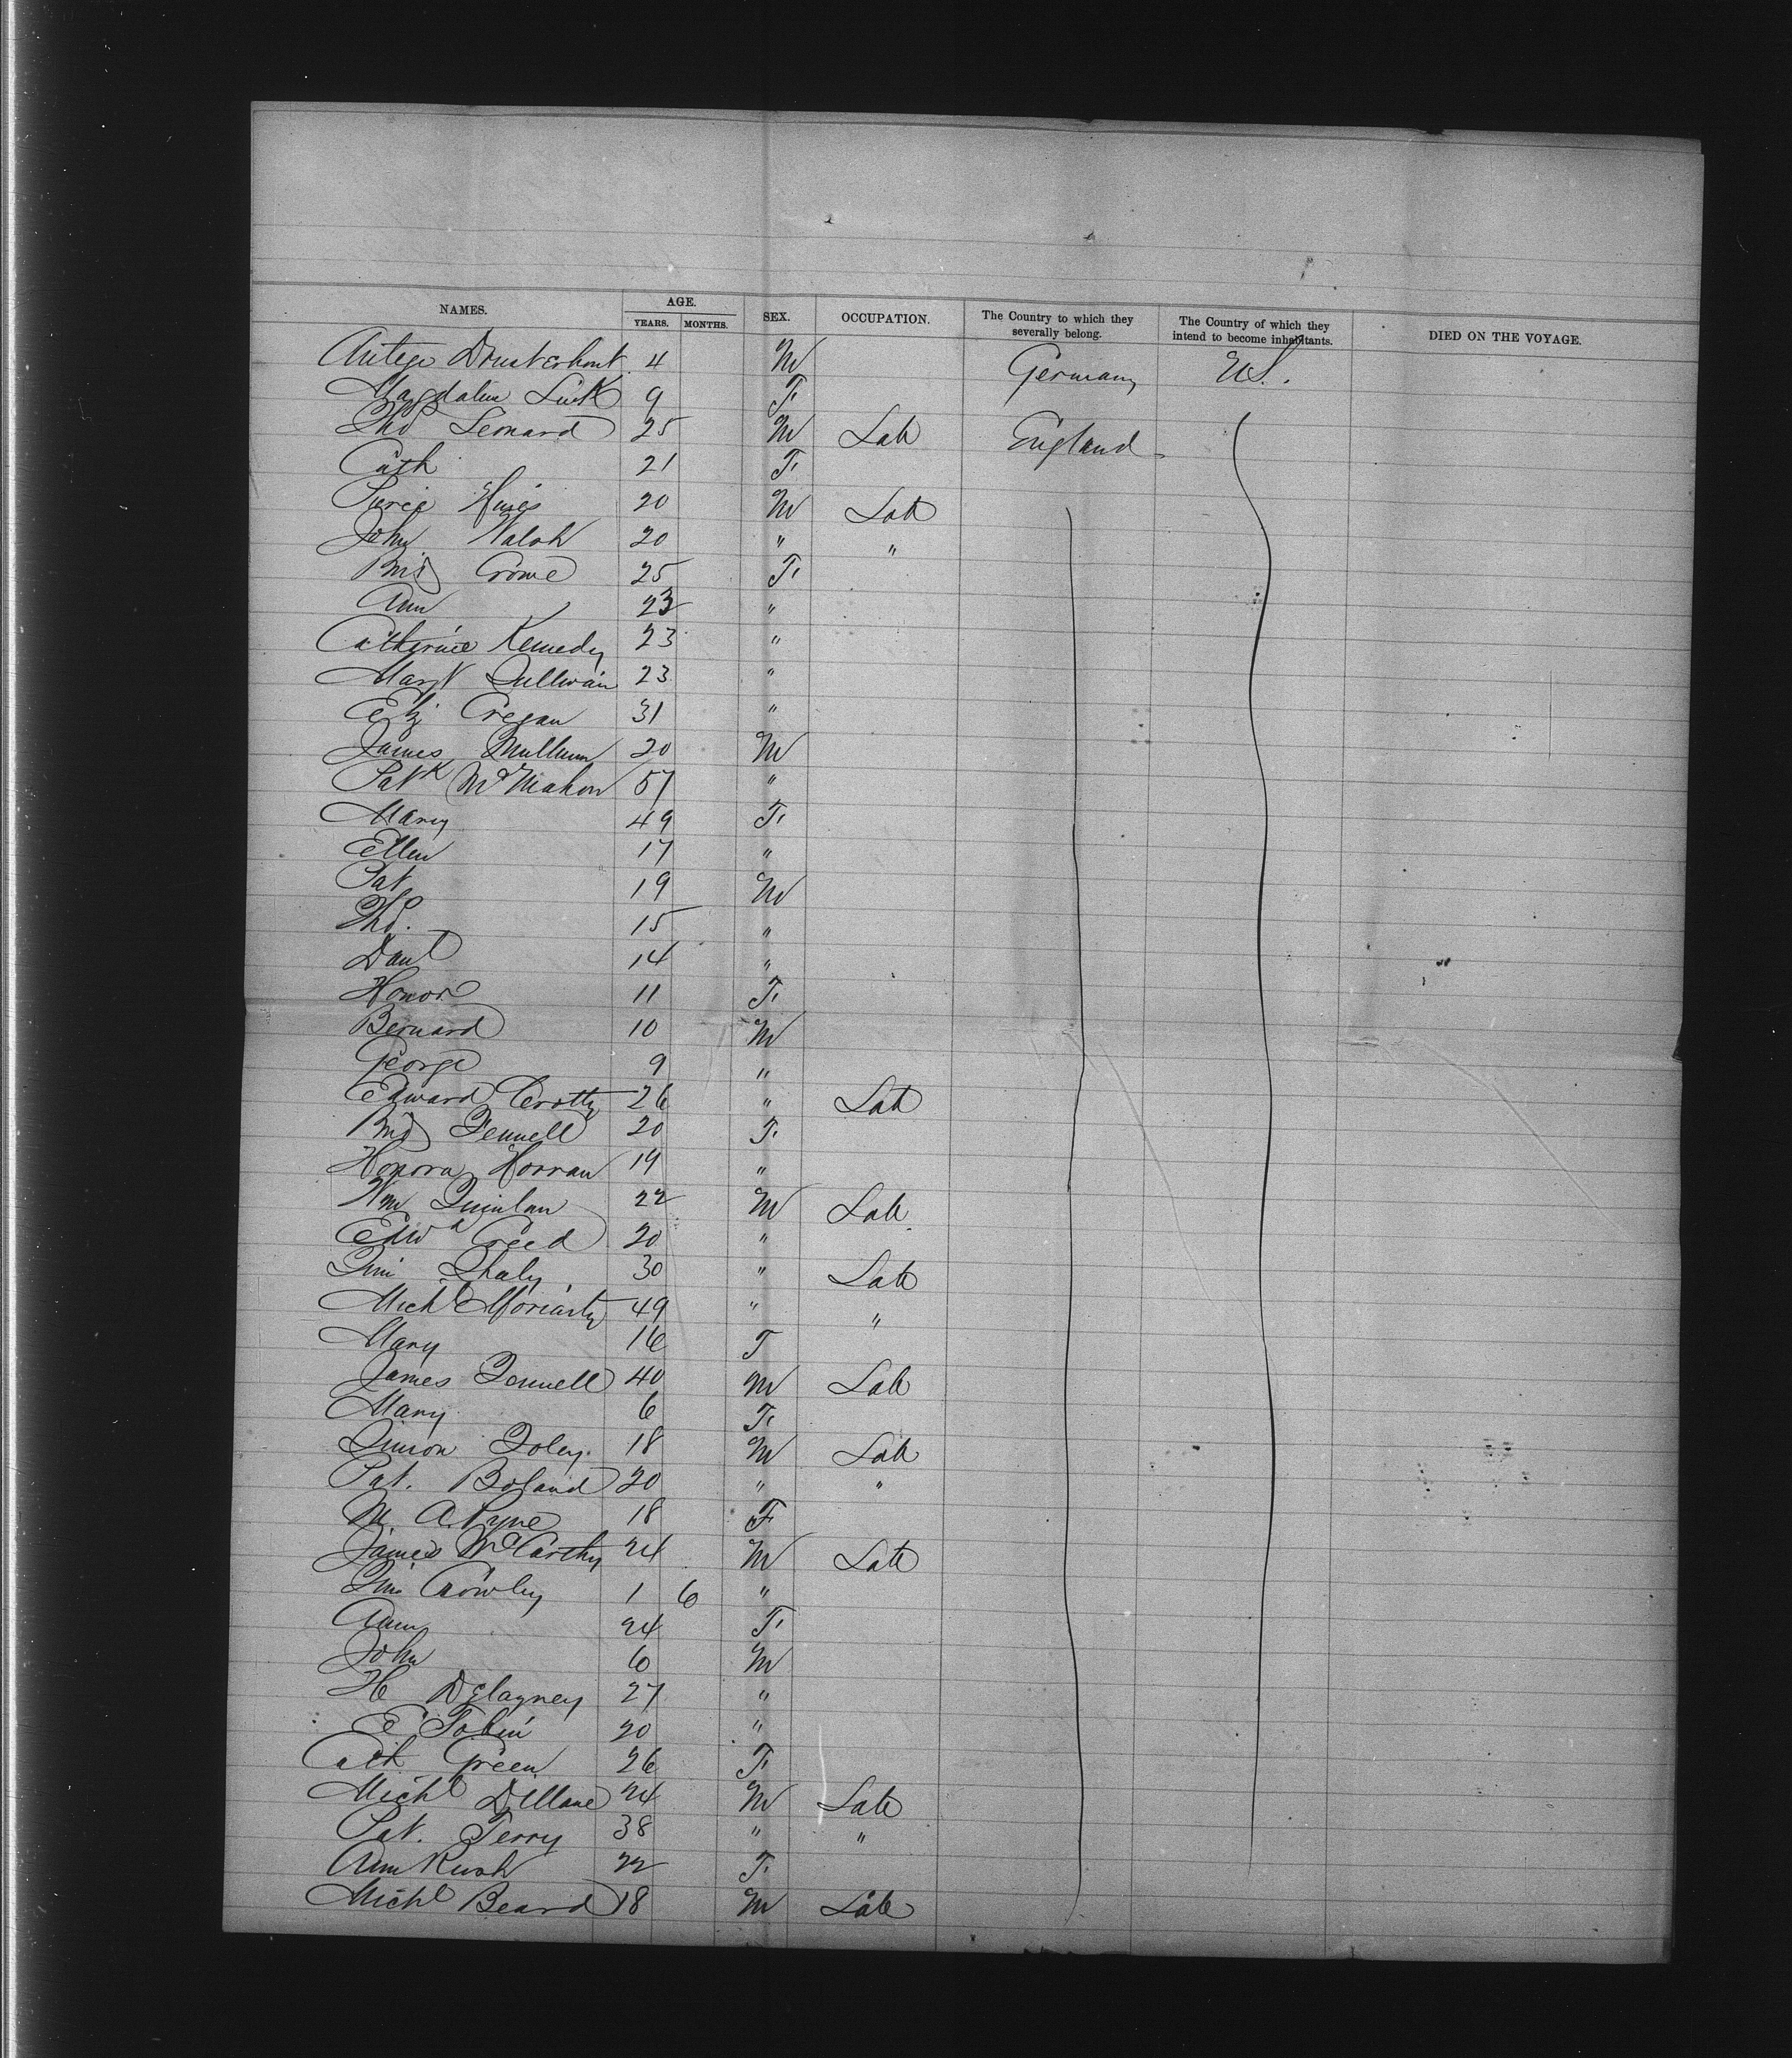 NAMES. AGE. YEARS. MONTHS. SEX. OCCUPATION. The Country to which they severally belong. The Country of which they intend to become inhabitants. DIED ON THE VOYAGE.
4 M Germany U.S.
Magdalin 9 F.
Tho⁠s Leonard 25 M Lab England
Cath 21 F.
20 M Lab
John Walsh 20 " "
Brid Crowe 25 F.
Ann 23 "
Catherine Kennedy 23 "
Mary Sullivan 23 "
Eliz Cregan 31 "
James 20 M
Patk McMahon 57 "
Mary 49 F.
Ellen 17 "
Pat 19 M
Tho. 15 "
Danl 14 "
Honor 11 F.
Bernard 10 M
George 9 "
Edward Crotty 26 " Lab
Brid Fennell 20 F.
Honora Horran 19 "
Wm Quinlan 22 M Lab
Edwd Creed 20 "
Tim 30 " Lab
Michl Moriarty 49 " "
Mary 16 F
James Fennell 40 M Lab
Mary 6 F.
Simon Foley 18 M Lab
Pat. Boland 20 " "
M. A. Pyne 18 F
James McCarthy 24 M Lab
Tim Crowley 1 6 "
Ann 24 F.
John 6 M
H Delayney 27 "
E Tobin 20 "
Cath Green 26 F.
Michl Dillane 24 M Lab
Pat. Terry 38 " "
Ann Rush 22 F.
Michl Beard 18 M Lab